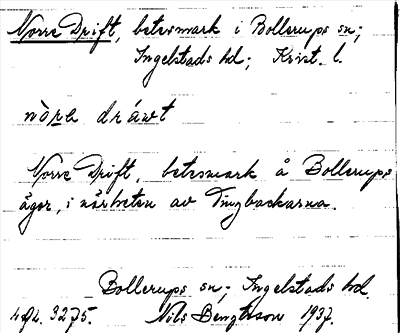 Norre Drift, betesmark i Bollerups sn;
Ingelstads hd; Krist. l.
nòra dráwt
Norre Drift, betesmark å Bollerups
ägor, i närheten av Tingbackarna.
Bollerups sn; Ingelstads hd.
3275. Nils Bengtsson 1937.